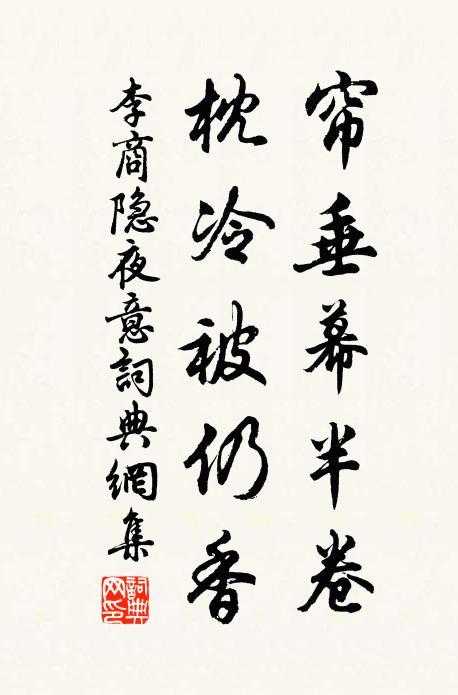 帘垂幕半卷
枕冷被仍香
李商隐夜意詞典網集
詞典网印